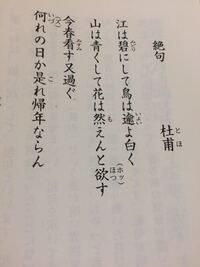 絶句
杜甫
江は碧にして鳥は逾よ白く
山は青くして花は然えんと欲す
今春看す又過ぐ
何れの日か是れ帰年ならん